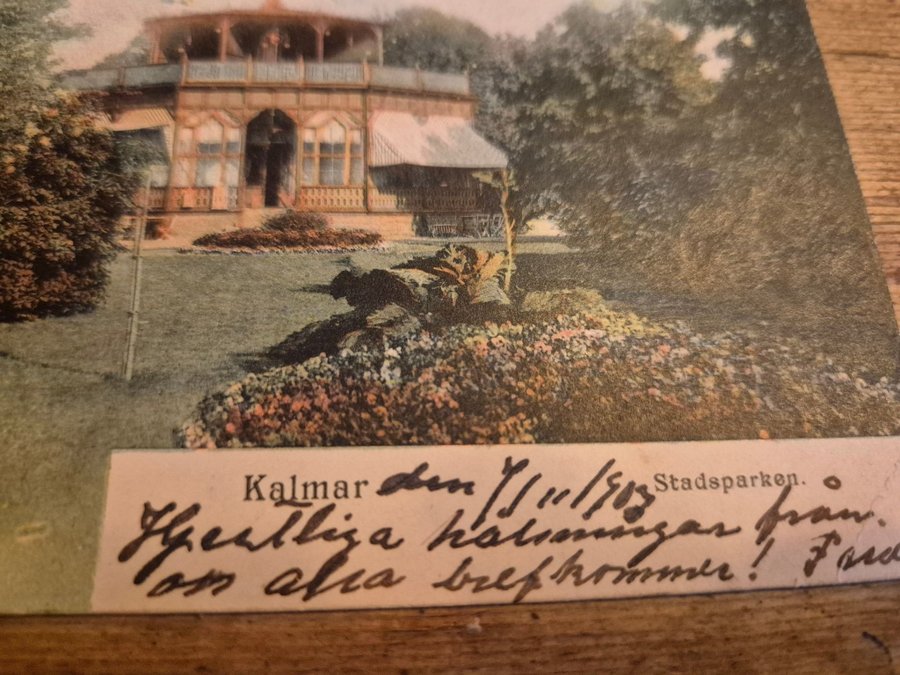 Kalmar den 7/11 1903 Stadsparken.
Hjertliga hälsningar från
om alla bref kommer!